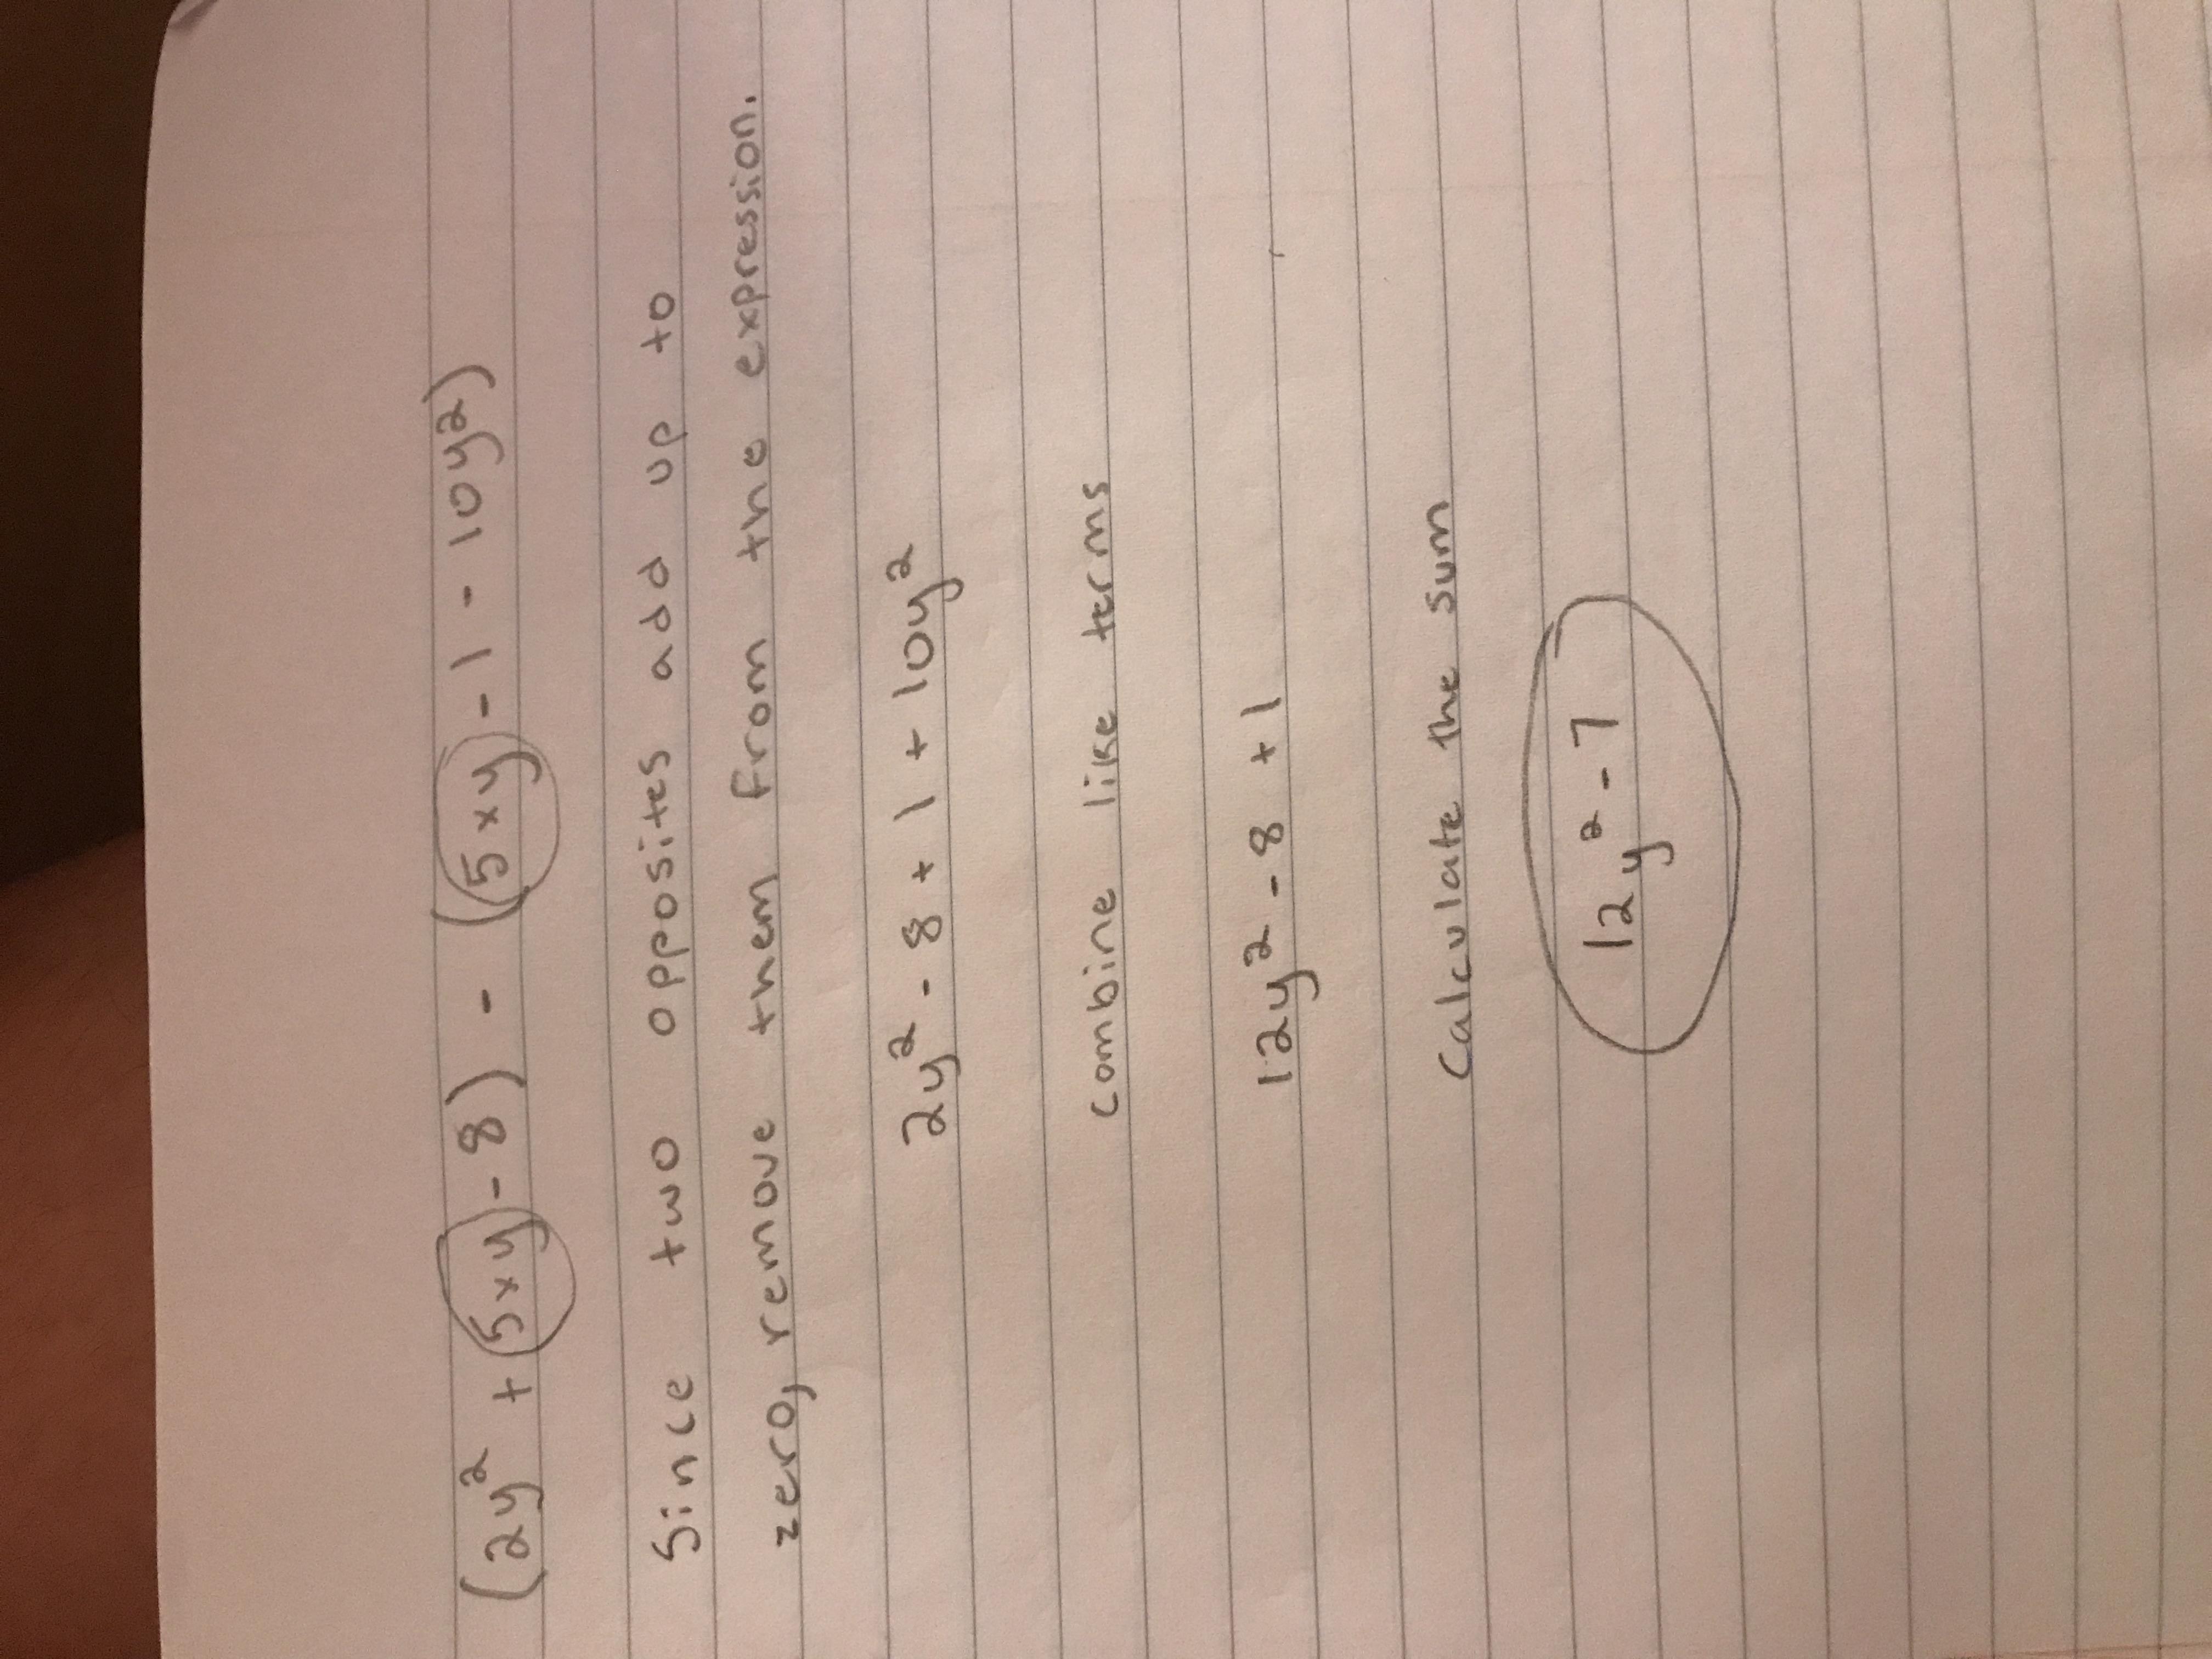 (2y² + 5xy - 8) - (5xy - 1 - 10y²)
Since two opposites add up to
zero, remove them from the expression.
2y² - 8 + 1 + 10y²
combine like terms
12y² - 8 + 1
Calculate the sum
12y² - 7